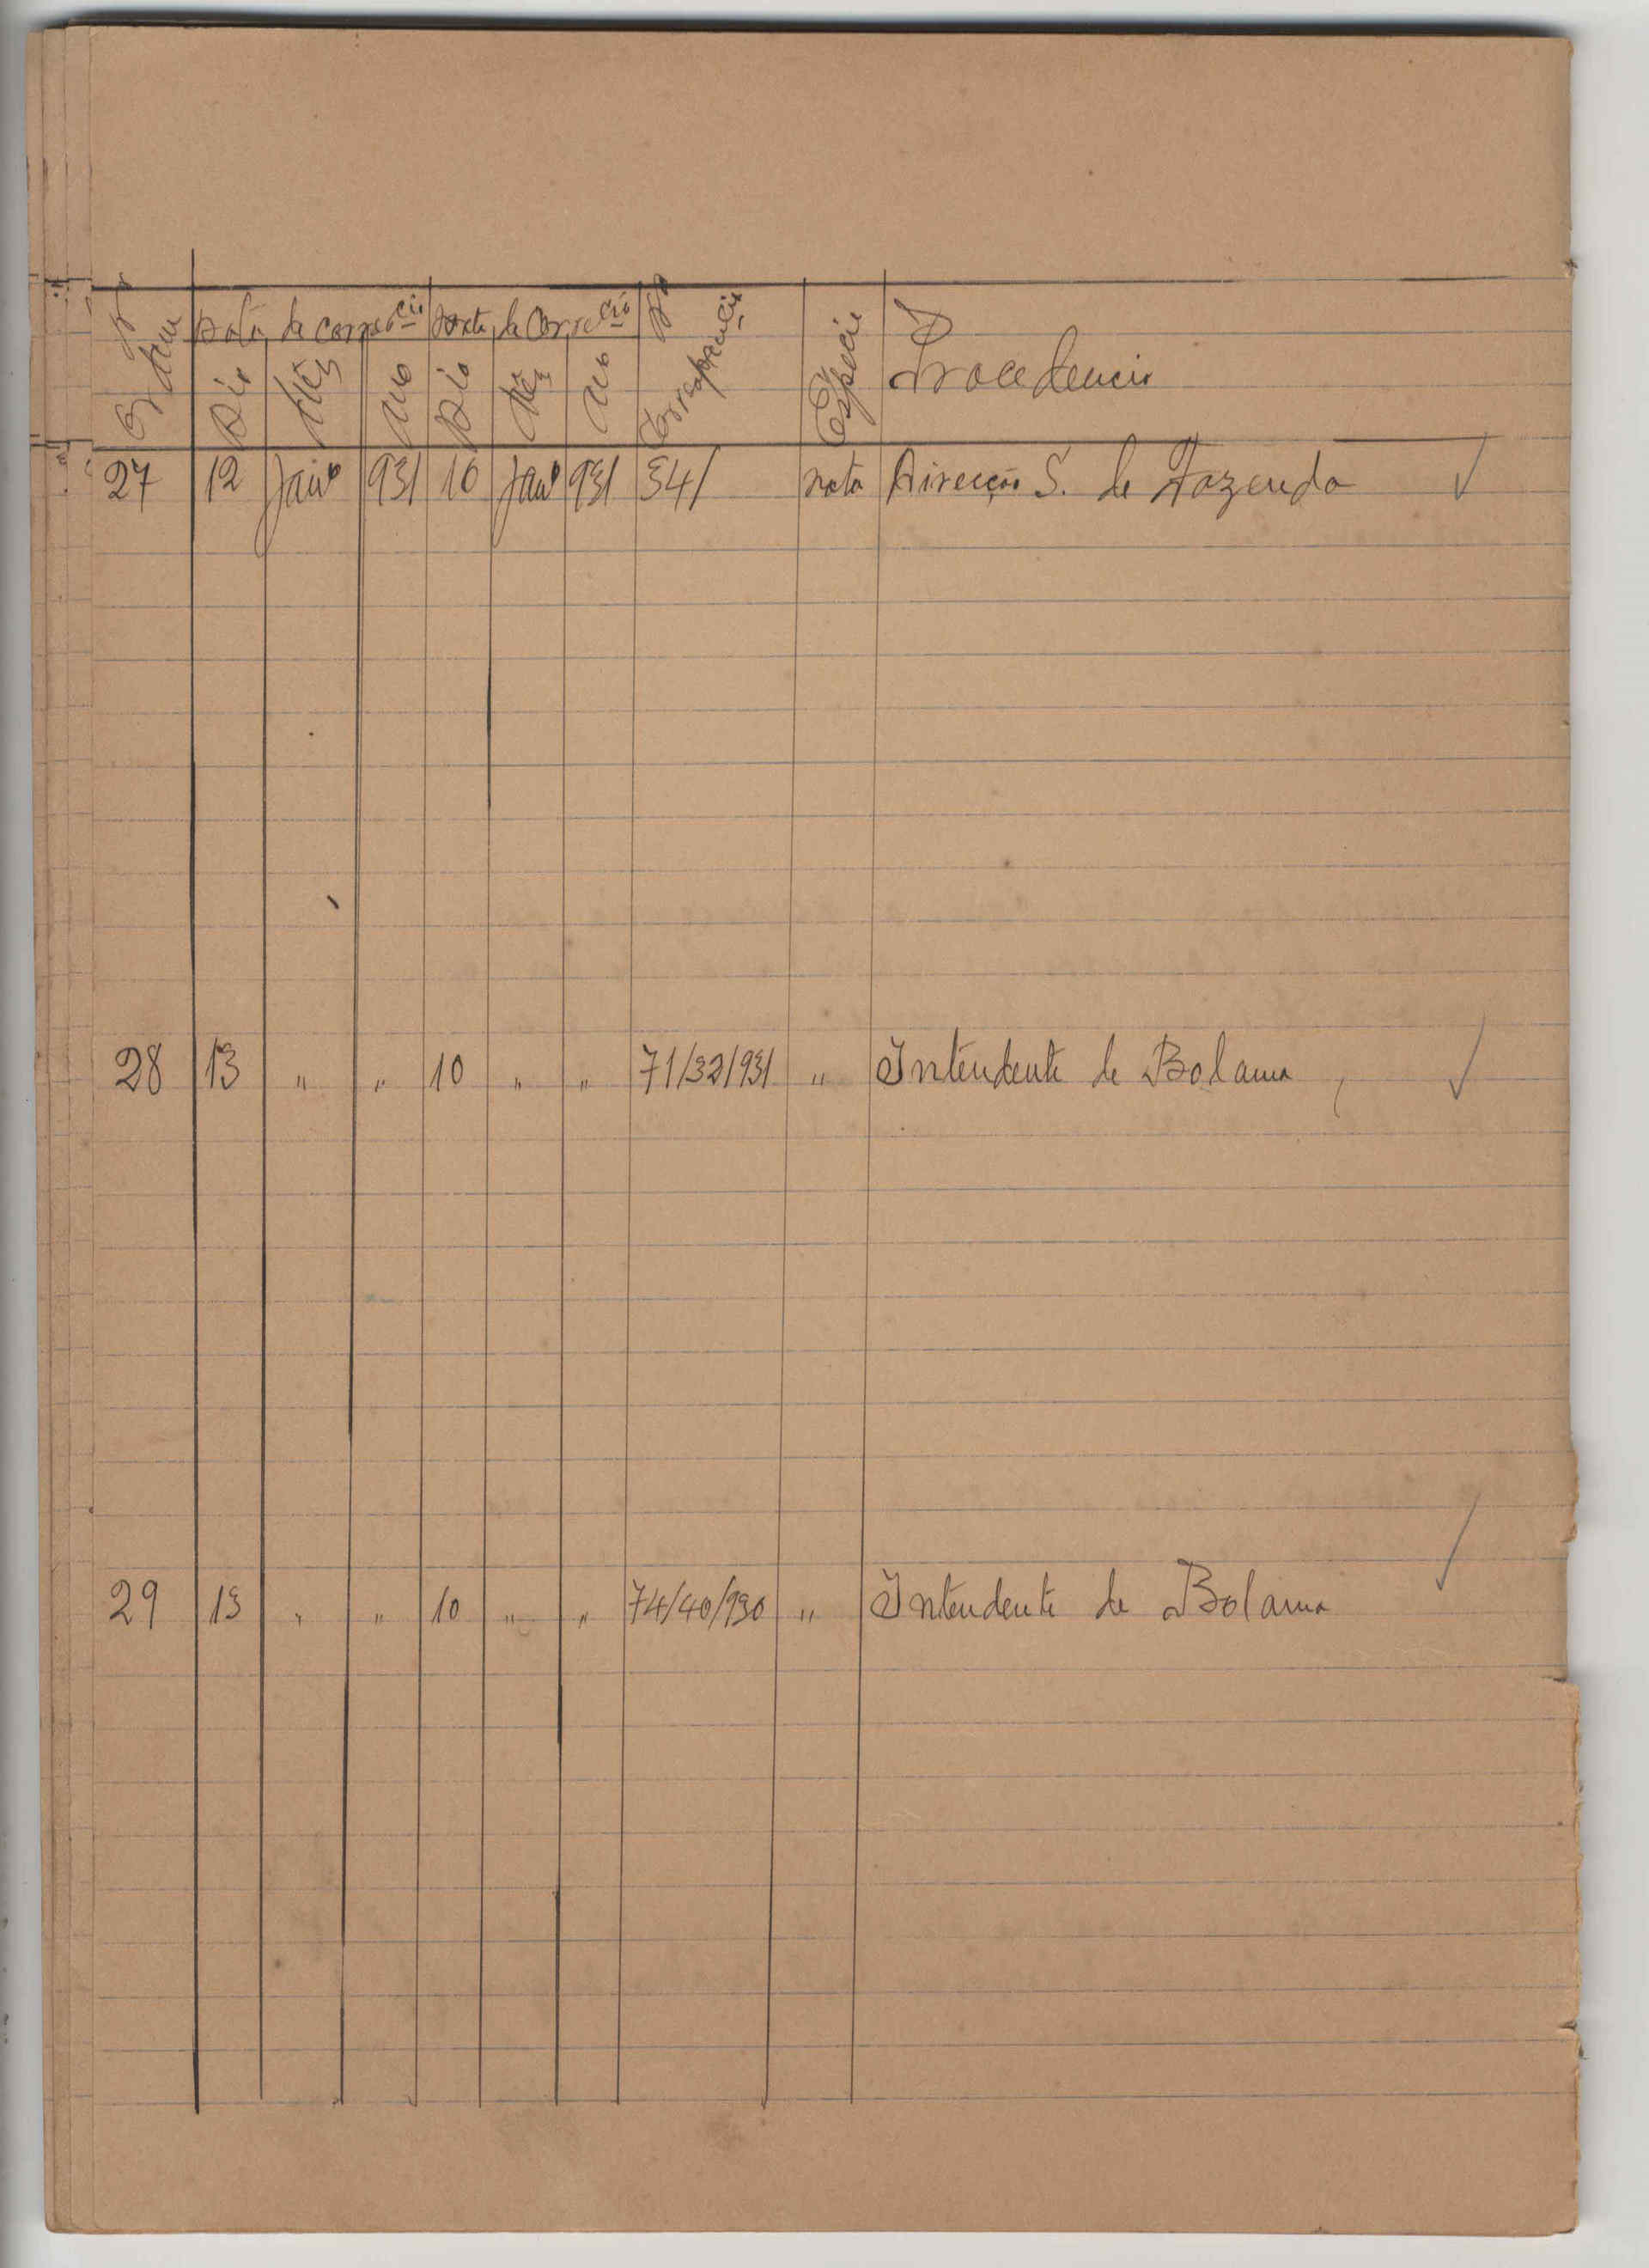 Nº Ordem Data da corres.cia Data da Corre.cia Nº Correspondencia Especie Procedencia
Dia Mês Ano Dia Mês Ano
27 12 Janº 931 10 Janº 931 341 nota Direcção S. de Fazenda ✓
28 13 " " 10 " " 71/32/931 " Intendente de Bolama, ✓
29 13 " " 10 " " 74/40/930 " Intendente de Bolama ✓